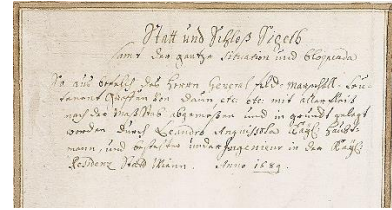 Statt und Schloß Sigeth
samt der gantze Situation und Bloquada
So aus befelch des Herrn General Feld-Marschall-Leu-
tenant Graffen von Daun etc etc: mit allem fleis
nach der Maßstab abgemessen und in grundt gelegt
worden durch Leandro Anguissola Kaÿ: Haubt-
mann, und bestelter under Ingenieur in der Kaÿ:
Residenz Stadt Wienn. Anno 1689.